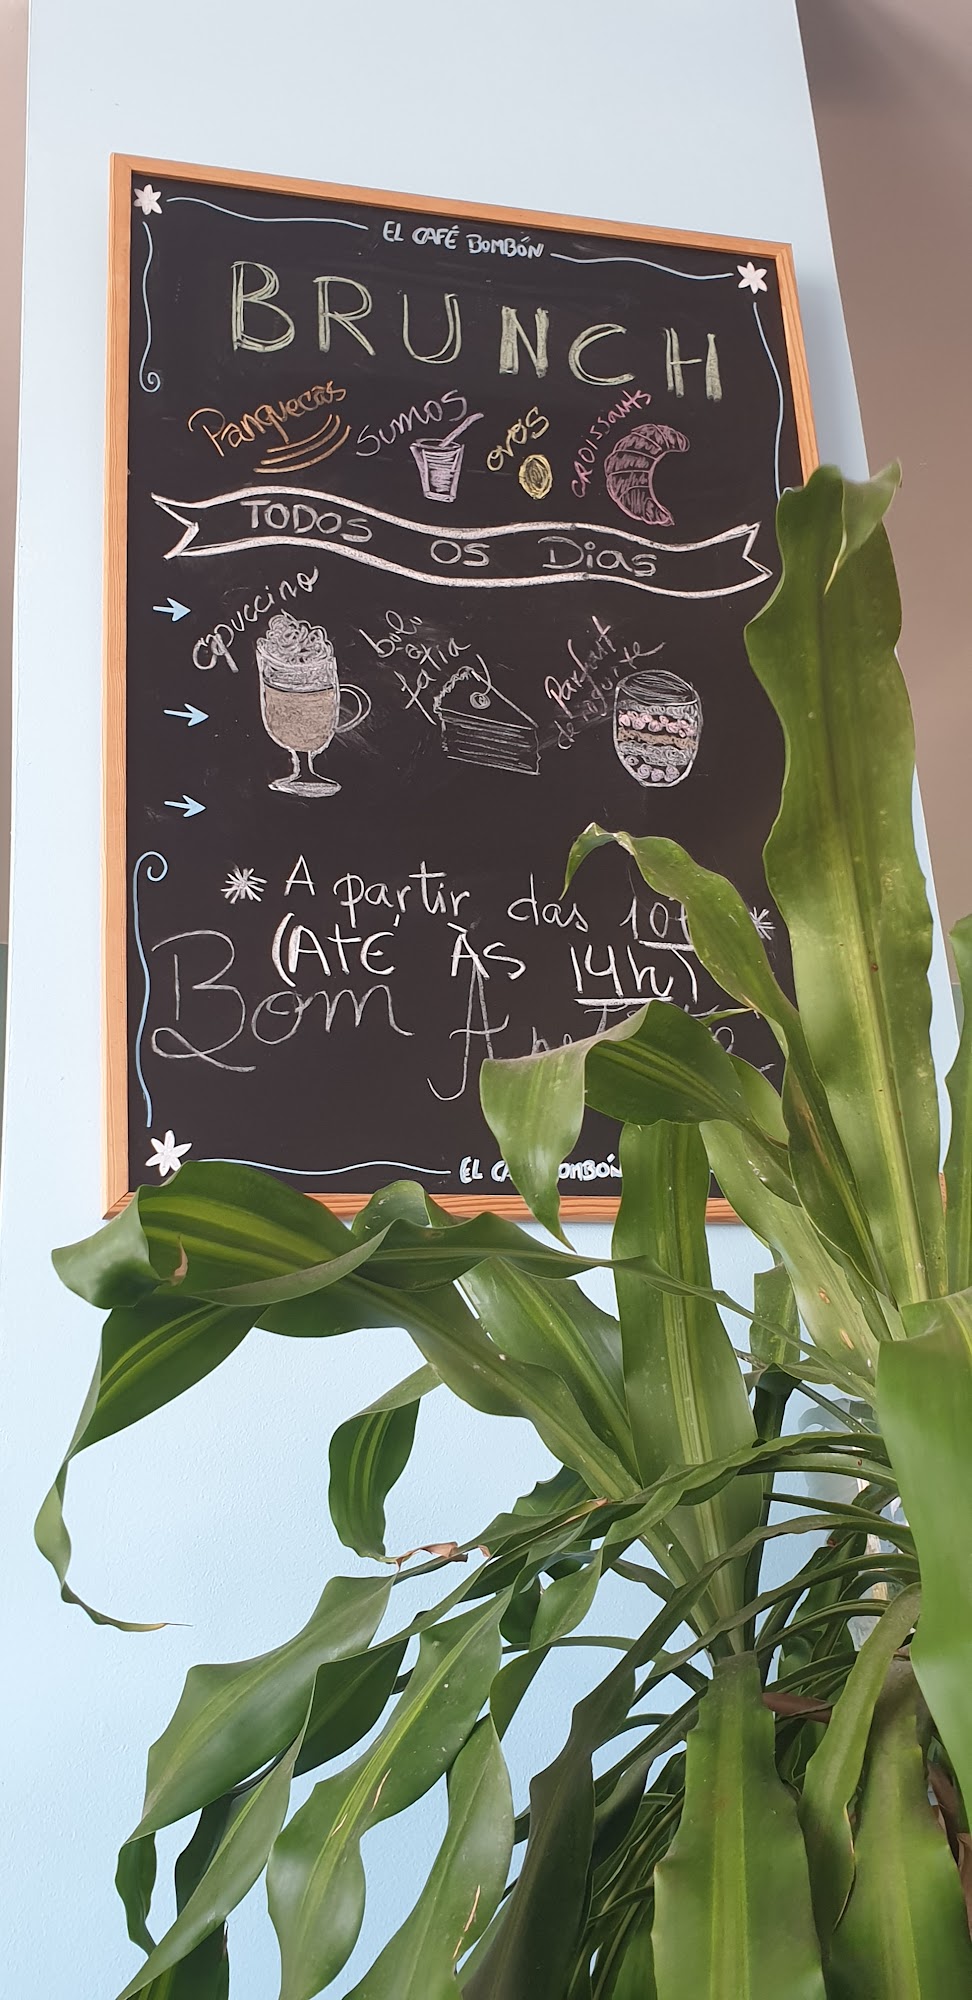 EL CAFÉ BOMBÓN
BRUNCH
Panquecas sumos ovos CROISSANTS
TODOS OS Dias
capuccino bolo fatia Parfait de iogurte
A partir das
(ATÉ ÀS 14h)
Bom
EL